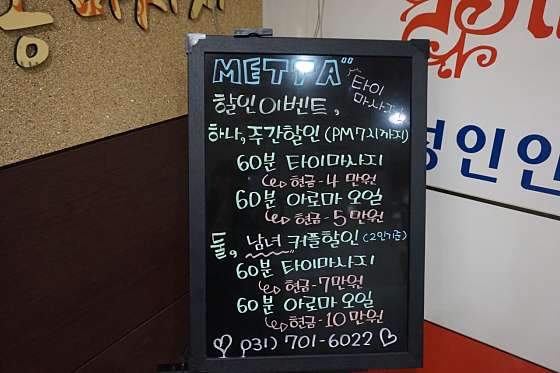 METTA"
타이
마사지
할인이벤트,
하나, 주간할인 (PM7시까지)
60분 타이마사지
↳ 현금-4 만원
60분 아로마 오일
↳ 현금-5만원
둘, 남녀 커플할인 (2인기준)
60분 타이마사지
↳ 현금-7만원
60분 아로마오일
↳ 현금-10만원
♡ 031) 701-6022 ♡
성인인